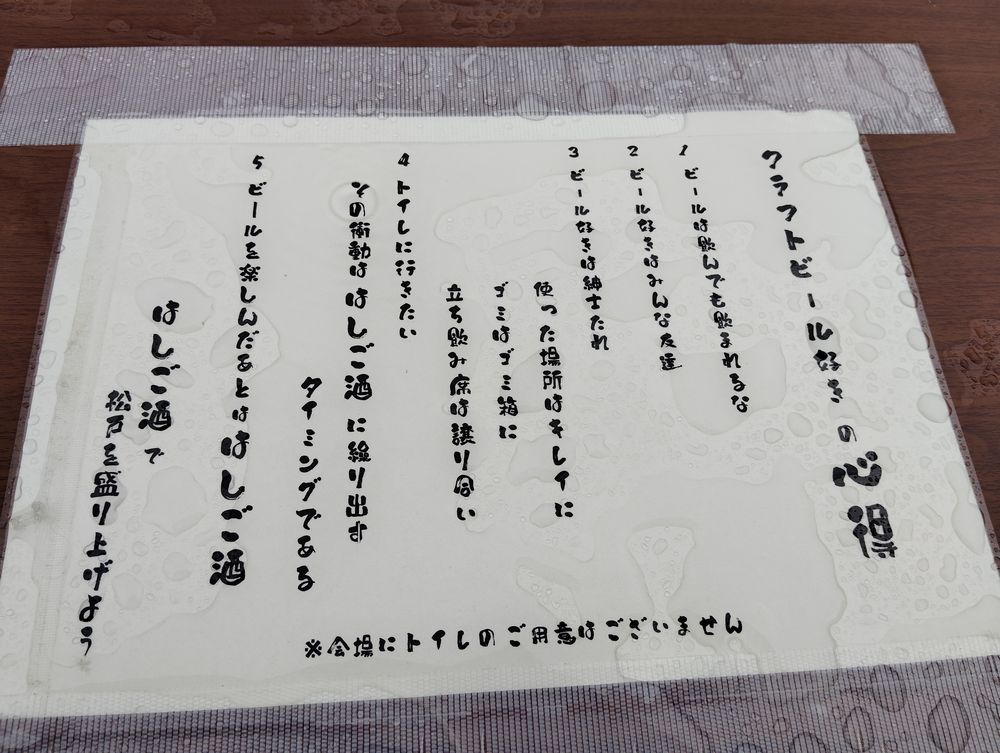 クラフトビール好きの心得
1 ビールは飲んでも飲まれるな
2 ビール好きはみんな友達
3 ビール好きは紳士たれ
使った場所はキレイに
ゴミはゴミ箱に
立ち飲み席は譲り合い
4 トイレに行きたい
その衝動は はしご酒 に繰り出す
タイミングである
5 ビールを楽しんだあとは はしご酒
はしご酒で
松戸を盛り上げよう
※会場にトイレのご用意はございません